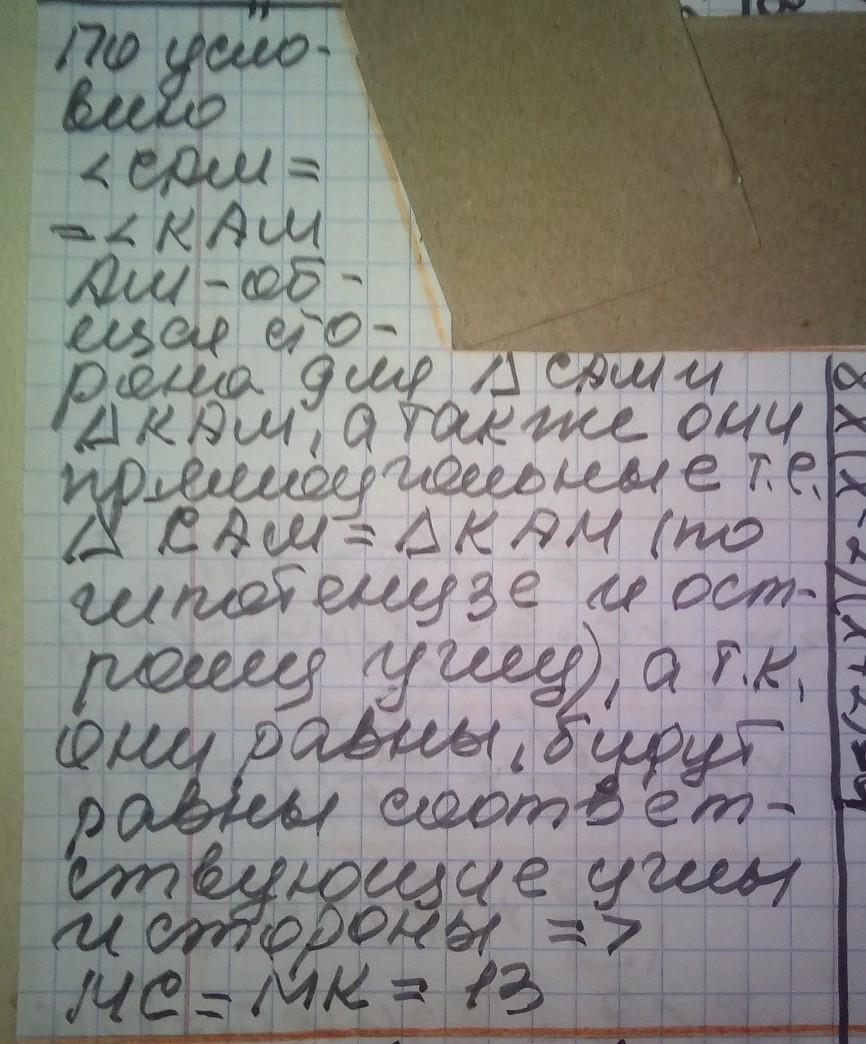 По усло-
вию
∠CAM =
= ∠KAM
AM - об-
щая сто-
рона для Δ CAM и
Δ KAM, а также они
прямоугольные т.е.
Δ CAM = Δ KAM (по
гипотенузе и ост-
рому углу), а т.к.
они равны, будут
равны соответ-
ствующие углы
и стороны =>
MC = MK = 13